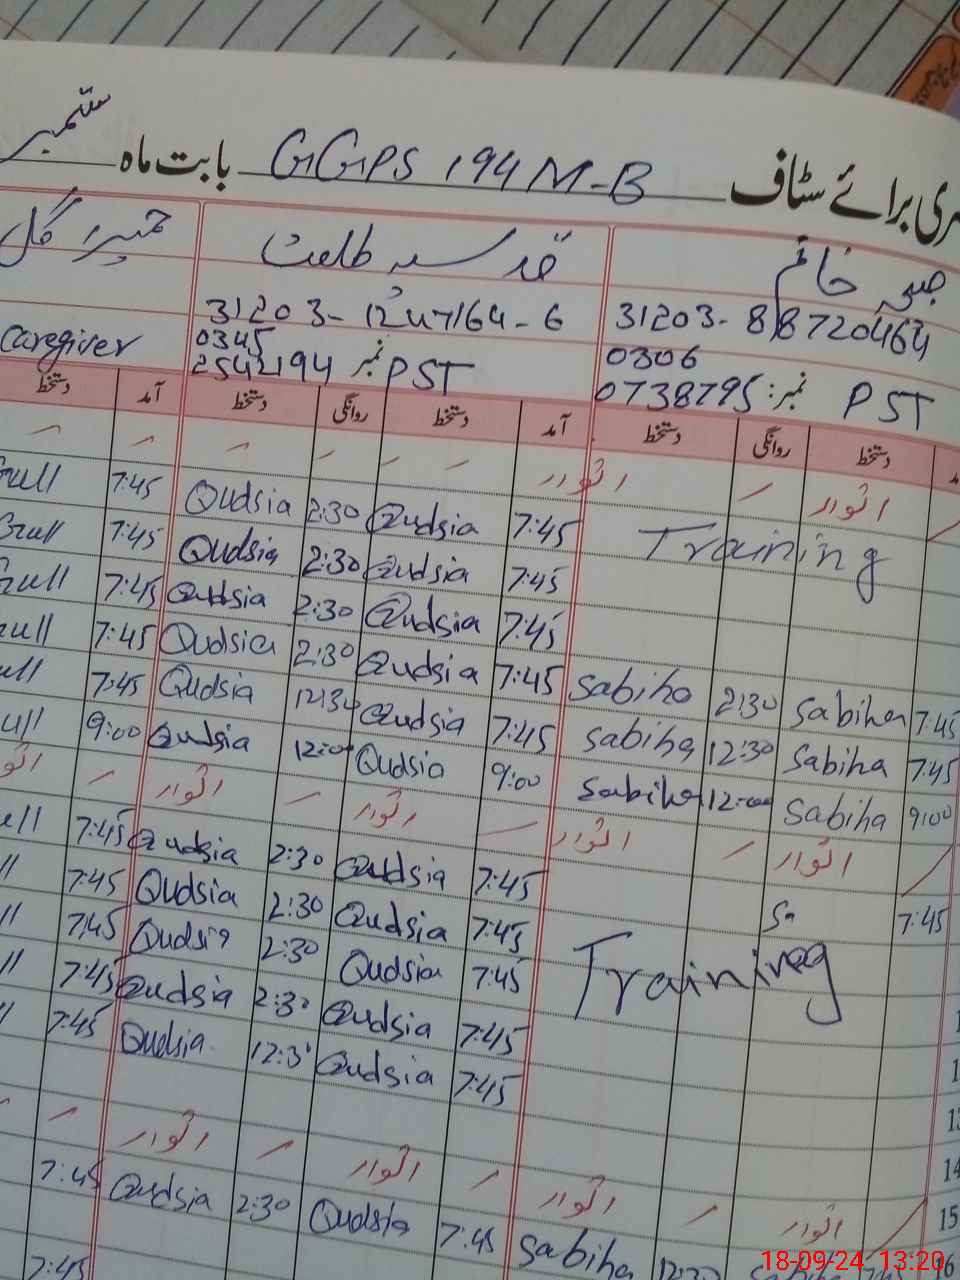 ری برائے سٹاف GGPS 194 M-B بابت ماہ ستمبر
خانم قدسیہ طلعت حمیرا گل
31203-8872046 31203-1247164-6
0306 0345
0738795 نمبر: PST 2542194 نمبر PST Caregiver
دستخط روانگی دستخط آمد دستخط روانگی دستخط آمد دستخط
اتوار اتوار
Training 7:45 Qudsia 2:30 Qudsia 7:45 Gull
7:45 Qudsia 2:30 Qudsia 7:45 Gull
7:45 Qudsia 2:30 Qudsia 7:45 Gull
7:45 Sabiha 2:30 Sabiha 7:45 Qudsia 2:30 Qudsia 7:45
7:45 Sabiha 12:30 Sabiha 7:45 Qudsia 12:30 Qudsia 7:45
9:00 Sabiha 12:00 Sabiha 9:00 Qudsia 12:00 Qudsia 9:00
اتوار اتوار اتوار اتوار
7:45 Sa 7:45 Qudsia 2:30 Qudsia 7:45
Training 7:45 Qudsia 2:30 Qudsia 7:45
7:45 Qudsia 2:30 Qudsia 7:45
7:45 Qudsia 2:30 Qudsia 7:45
7:45 Qudsia 12:3 Qudsia 7:45
14
15 اتوار اتوار اتوار اتوار
16 Sabiha 7:45 Qudsia 2:30 Qudsia 7:45
7:45
18-09-24 13:20